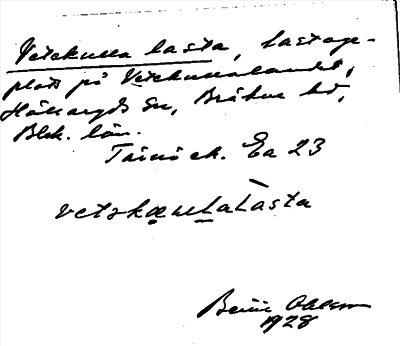 Vetekulla lasta, lastage-
plats på Vetekullalandet,
Hällaryds sn, Bräkne hd,
Blek. län.
Tärnö ek. Ea 23
Bertil Ohlsson
1928